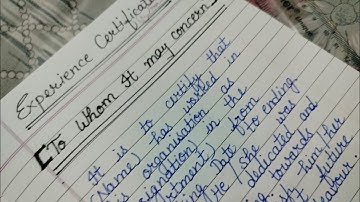 Experience Certificate
[To whom It may concern
It is to certify that
(Name) has worked in
organisation as
(Designation) in the
from
Date to ending
He/she was
dedicated and
towards
him/her
future